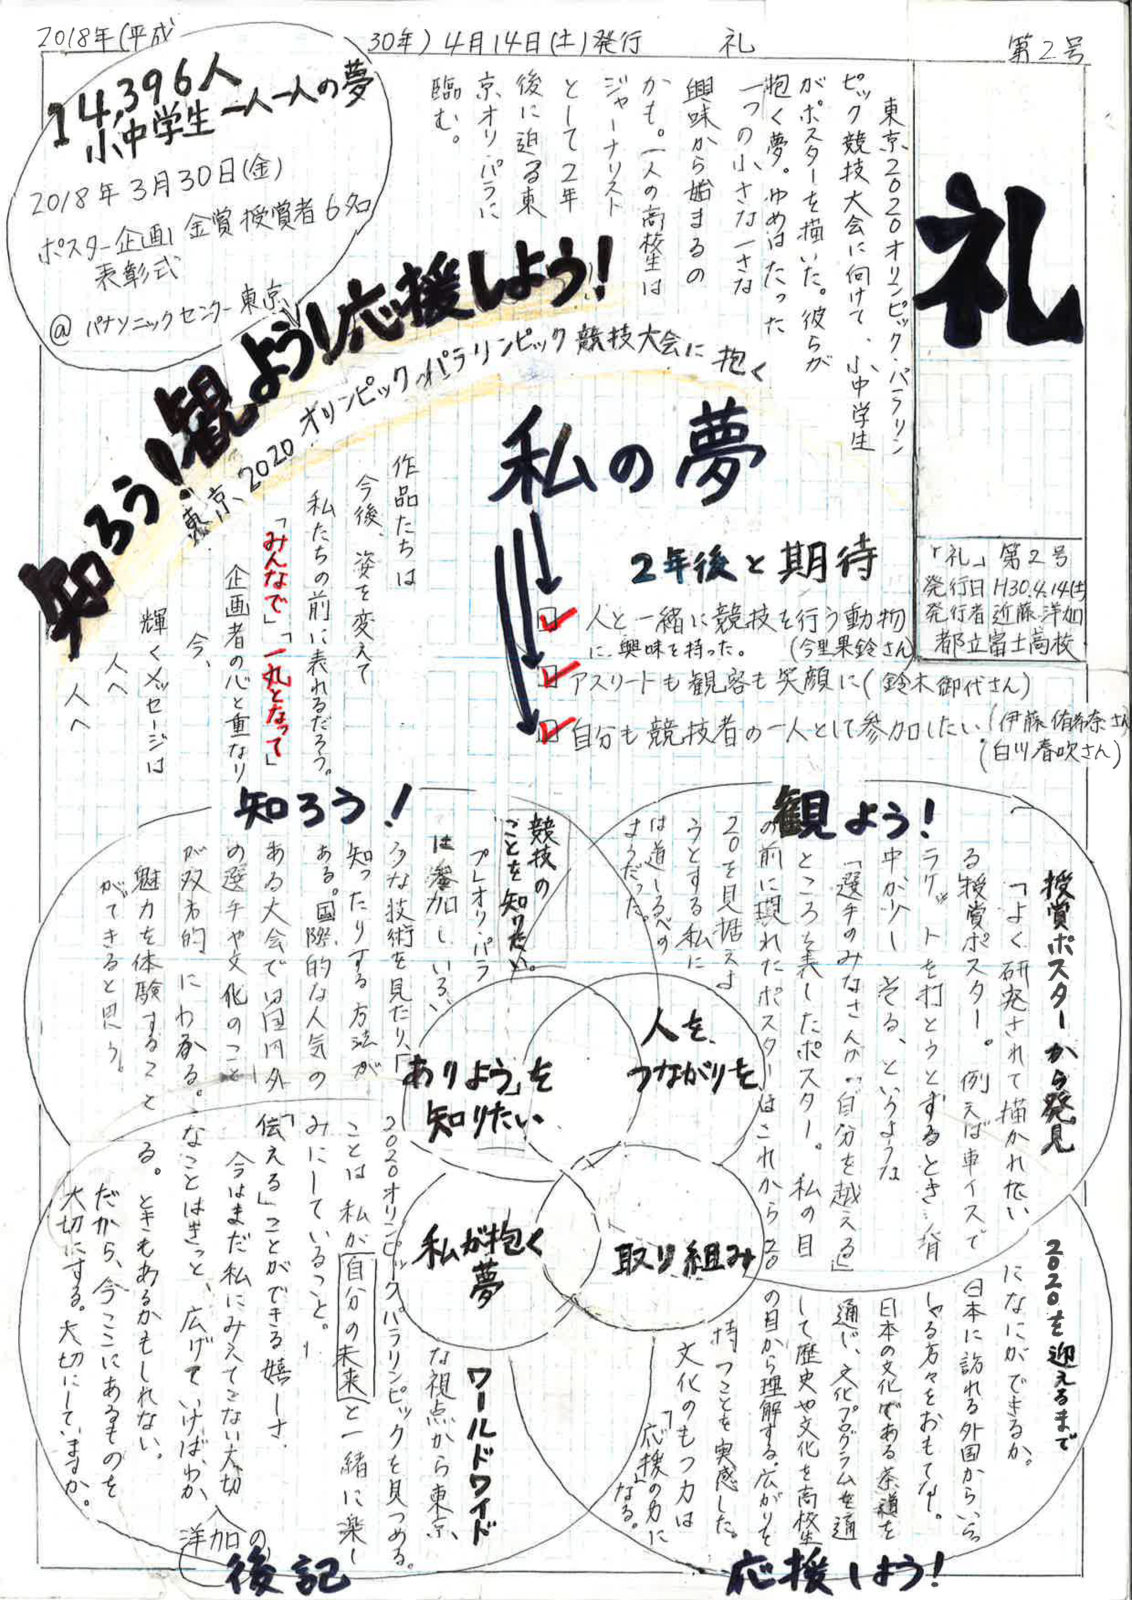 2018年(平成30年)4月14日(土)発行 礼 第2号
礼
「礼」第2号
発行日 H30.4.14(土)
発行者 近藤洋加
都立富士高校
14,396人
小中学生一人一人の夢
2018年3月30日(金)
ポスター企画 金賞授賞者6名
表彰式
@パナソニックセンター東京
東京2020オリンピック・パラリン
ピック競技大会に向けて、小中学生
がポスターを描いた。彼らが
抱く夢。ゆめはたった
一つの小さな一さな
興味から始まるの
かも。一人の高校生は
ジャーナリスト
として2年
後に迫る東
京オリ・パラに
臨む。
知ろう!観よう!応援しよう!
東京2020オリンピック・パラリンピック競技大会に抱く
私の夢
2年後と期待
人と一緒に競技を行う動物
に興味を持った。(今里果鈴さん)
アスリートも観客も笑顔に(鈴木御代さん)
自分も競技者の一人として参加したい(伊藤佑希奈さん)
(白川春吹さん)
作品たちは
今後、姿を変えて
私たちの前に表れるだろう。
「みんなで」「一丸となって」
企画者の心と重なり
今、
輝くメッセージは
人へ
人へ
知ろう!
競技の
ことを知りたい。
プレオリ・パラ
は参加し、いろい
ろな技術を見たり、「
知ったりする方法が
ある。国際的な人気の
ある大会では国内外
の選手や文化のこと
が双方的にわかる。
魅力を体験すること
ができると思う。
観よう!
授賞ポスターから発見
「よく研究されて描かれてい
る授賞ポスター。例えば車イスで
ラケットを打とうとするとき、背
中が少しそる、というような
「選手のみなさんが“自分を越える」
ところを表したポスター。私の目
の前に現れたポスターはこれから20
20を見据えよ
うとする私に
は道しるべの
ようだった。
ありよう」を
知りたい
人を
つながりを
私が抱く
夢
取り組み
2020を迎えるまで
になにができるか。
日本に訪れる外国からいら
しゃる方々をおもてなし。
日本の文化である茶道を
通じ、文化プログラムを通
して歴史や文化を高校生
の目から理解する。広がりを
持つことを実感した。
文化のもつ力は
「応援」の力に
なる。
応援しよう!
ワールドワイド
な視点から東京
2020オリンピックパラリンピックを見つめる。
ことは私が自分の未来と一緒に楽し
みにしていること。
「伝える」ことができる嬉しさ、
今はまだ私にみえてこない大切
なことはきっと、広げていけば、わか
る。ときもあるかもしれない。
だから、今ここにあるものを
大切にする。大切にしていますか。
洋加の
後記